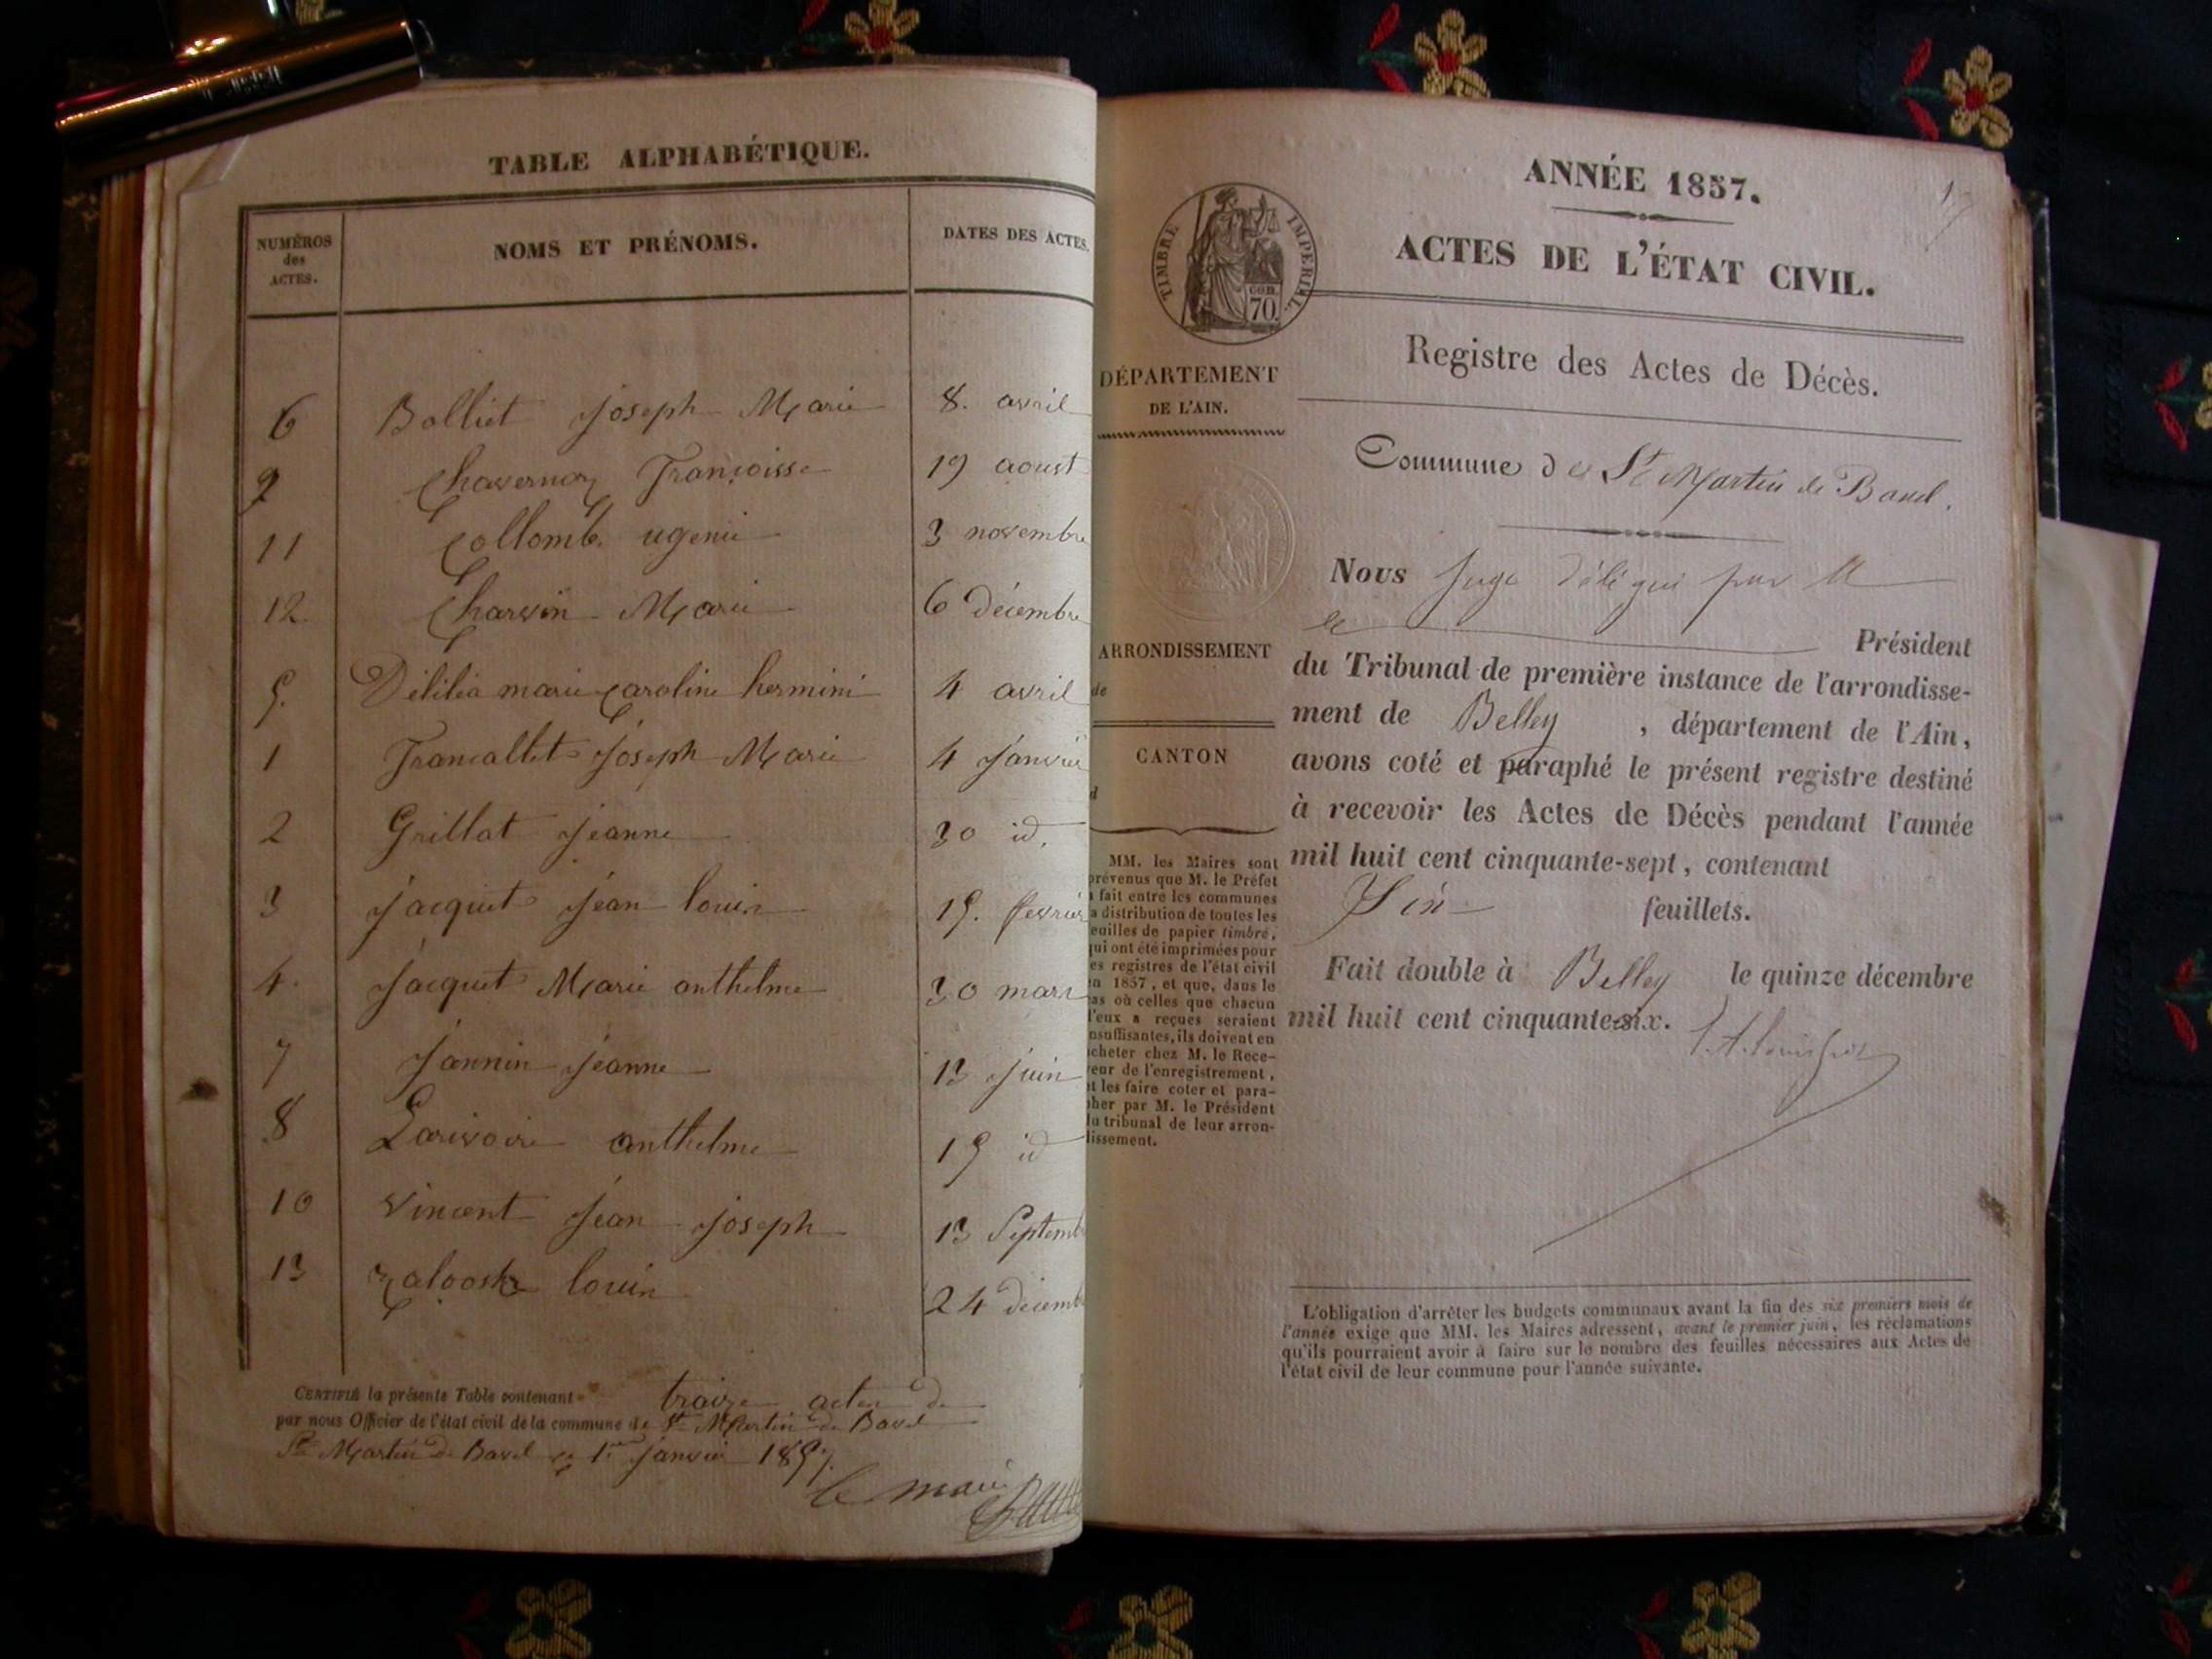 TABLE ALPHABÉTIQUE.
NUMÉROS des ACTES. NOMS ET PRÉNOMS. DATES DES ACTES.
6 Bolliet Joseph Marie 8. avril
9 Chavernoz Françoisse 19 aoust
11 Collomb ugenie 3 novembre
12. Charvin Marie 6 décembre
5. marie Caroline hermini 4 avril
1 Francallet Joseph Marie 4 Janvier
2 Grillat Jeanne 30 id.
3 Jacquet Jean louis 15. fevrier
4. Jacquet Marie anthelme 30 mars
7 Jannin Jeanne 13 Juin
8 Larivoire anthelme 15 id
10 Vincent Jean Joseph 13 Septemb
13 louis 24 decemb
CERTIFIÉ la présente Table contenant traize actes de
par nous Officier de l'état civil de la commune de St Martin de Bavel
St Martin de Bavel ce 1er Janvier 1857.
le maire
ANNÉE 1857.
ACTES DE L'ÉTAT CIVIL.
TIMBRE IMPERIAL.
70.
Registre des Actes de Décès.
DÉPARTEMENT
DE L'AIN.
Commune de St Martin de Bavel.
Nous Juge délégué par M
le Président
ARRONDISSEMENT
de
du Tribunal de première instance de l'arrondisse-
ment de Belley , département de l'Ain,
CANTON
d
avons coté et paraphé le présent registre destiné
à recevoir les Actes de Décès pendant l'année
mil huit cent cinquante-sept, contenant
Six feuillets.
Fait double à Belley le quinze décembre
mil huit cent cinquante-six.
MM. les Maires sont
prévenus que M. le Préfet
a fait entre les communes
la distribution de toutes les
feuilles de papier timbré,
qui ont été imprimées pour
les registres de l'état civil
en 1857, et que, dans le
cas où celles que chacun
d'eux a reçues seraient
insuffisantes, ils doivent en
acheter chez M. le Rece-
veur de l'enregistrement,
et les faire coter et para-
pher par M. le Président
du tribunal de leur arron-
dissement.
L'obligation d'arrêter les budgets communaux avant la fin des six premiers mois de
l'année exige que MM. les Maires adressent, avant le premier juin, les réclamations
qu'ils pourraient avoir à faire sur le nombre des feuilles nécessaires aux Actes de
l'état civil de leur commune pour l'année suivante.